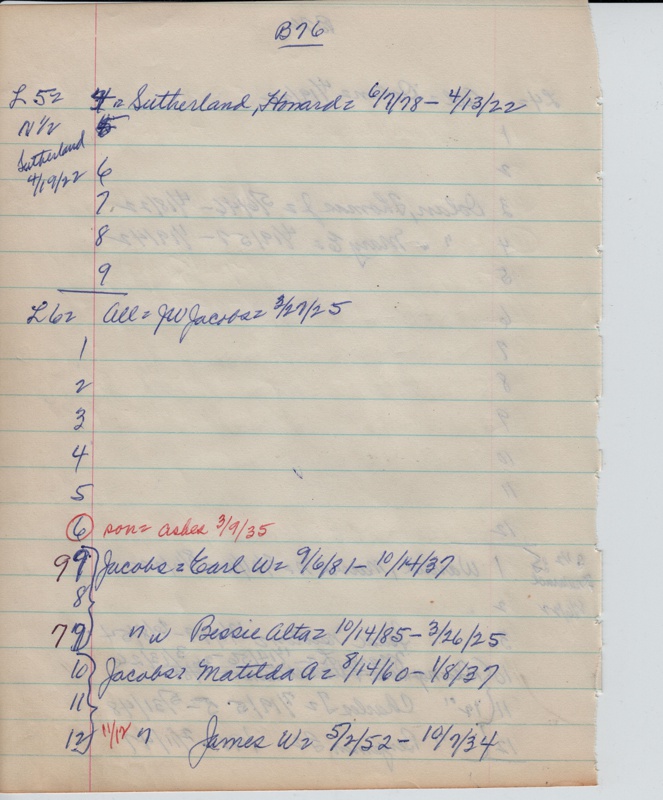 B76
L 5= 4 = Sutherland, Howard = 6/7/78 - 4/13/22
N 1/2 5
Sutherland
4/19/22 6
7
8
9
L 6= All = JW Jacobs = 3/27/25
1
2
3
4
5
6 son = ashes 3/9/35
9 7 Jacobs = Earl W = 9/6/81 - 10/14/37
8
7 9 " " Bessie Alta = 10/14/85 - 3/26/25
10 Jacobs = Matilda A = 8/14/60 - 1/8/37
11
12 11/12 " James W = 5/2/52 - 10/7/34